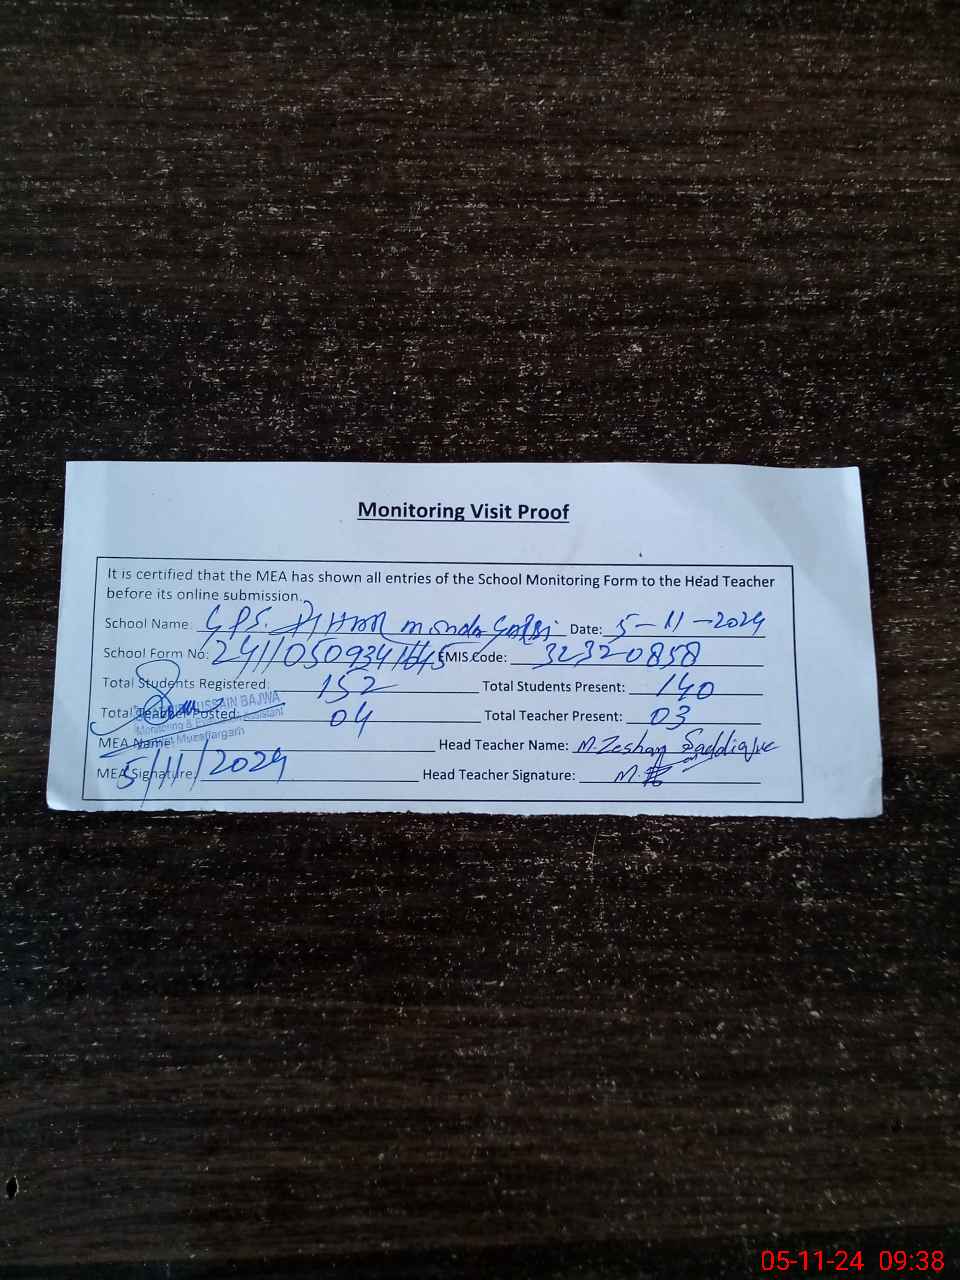 Monitoring Visit Proof
It is certified that the MEA has shown all entries of the School Monitoring Form to the Head Teacher
before its online submission.
School Name: GPS. Date: 5-11-2024
School Form No: EMIS Code: 32320858
Total Students Registered: 152 Total Students Present: 140
Total Teacher Posted: 04 Total Teacher Present: 03
HUSSAIN BAJWA
Monitoring & Evaluation Assistant
Muzaffargarh
MEA Name: Head Teacher Name: M. Zeshan Saddique
MEA Signature: 5/11/2024 Head Teacher Signature:
05-11-24 09:38